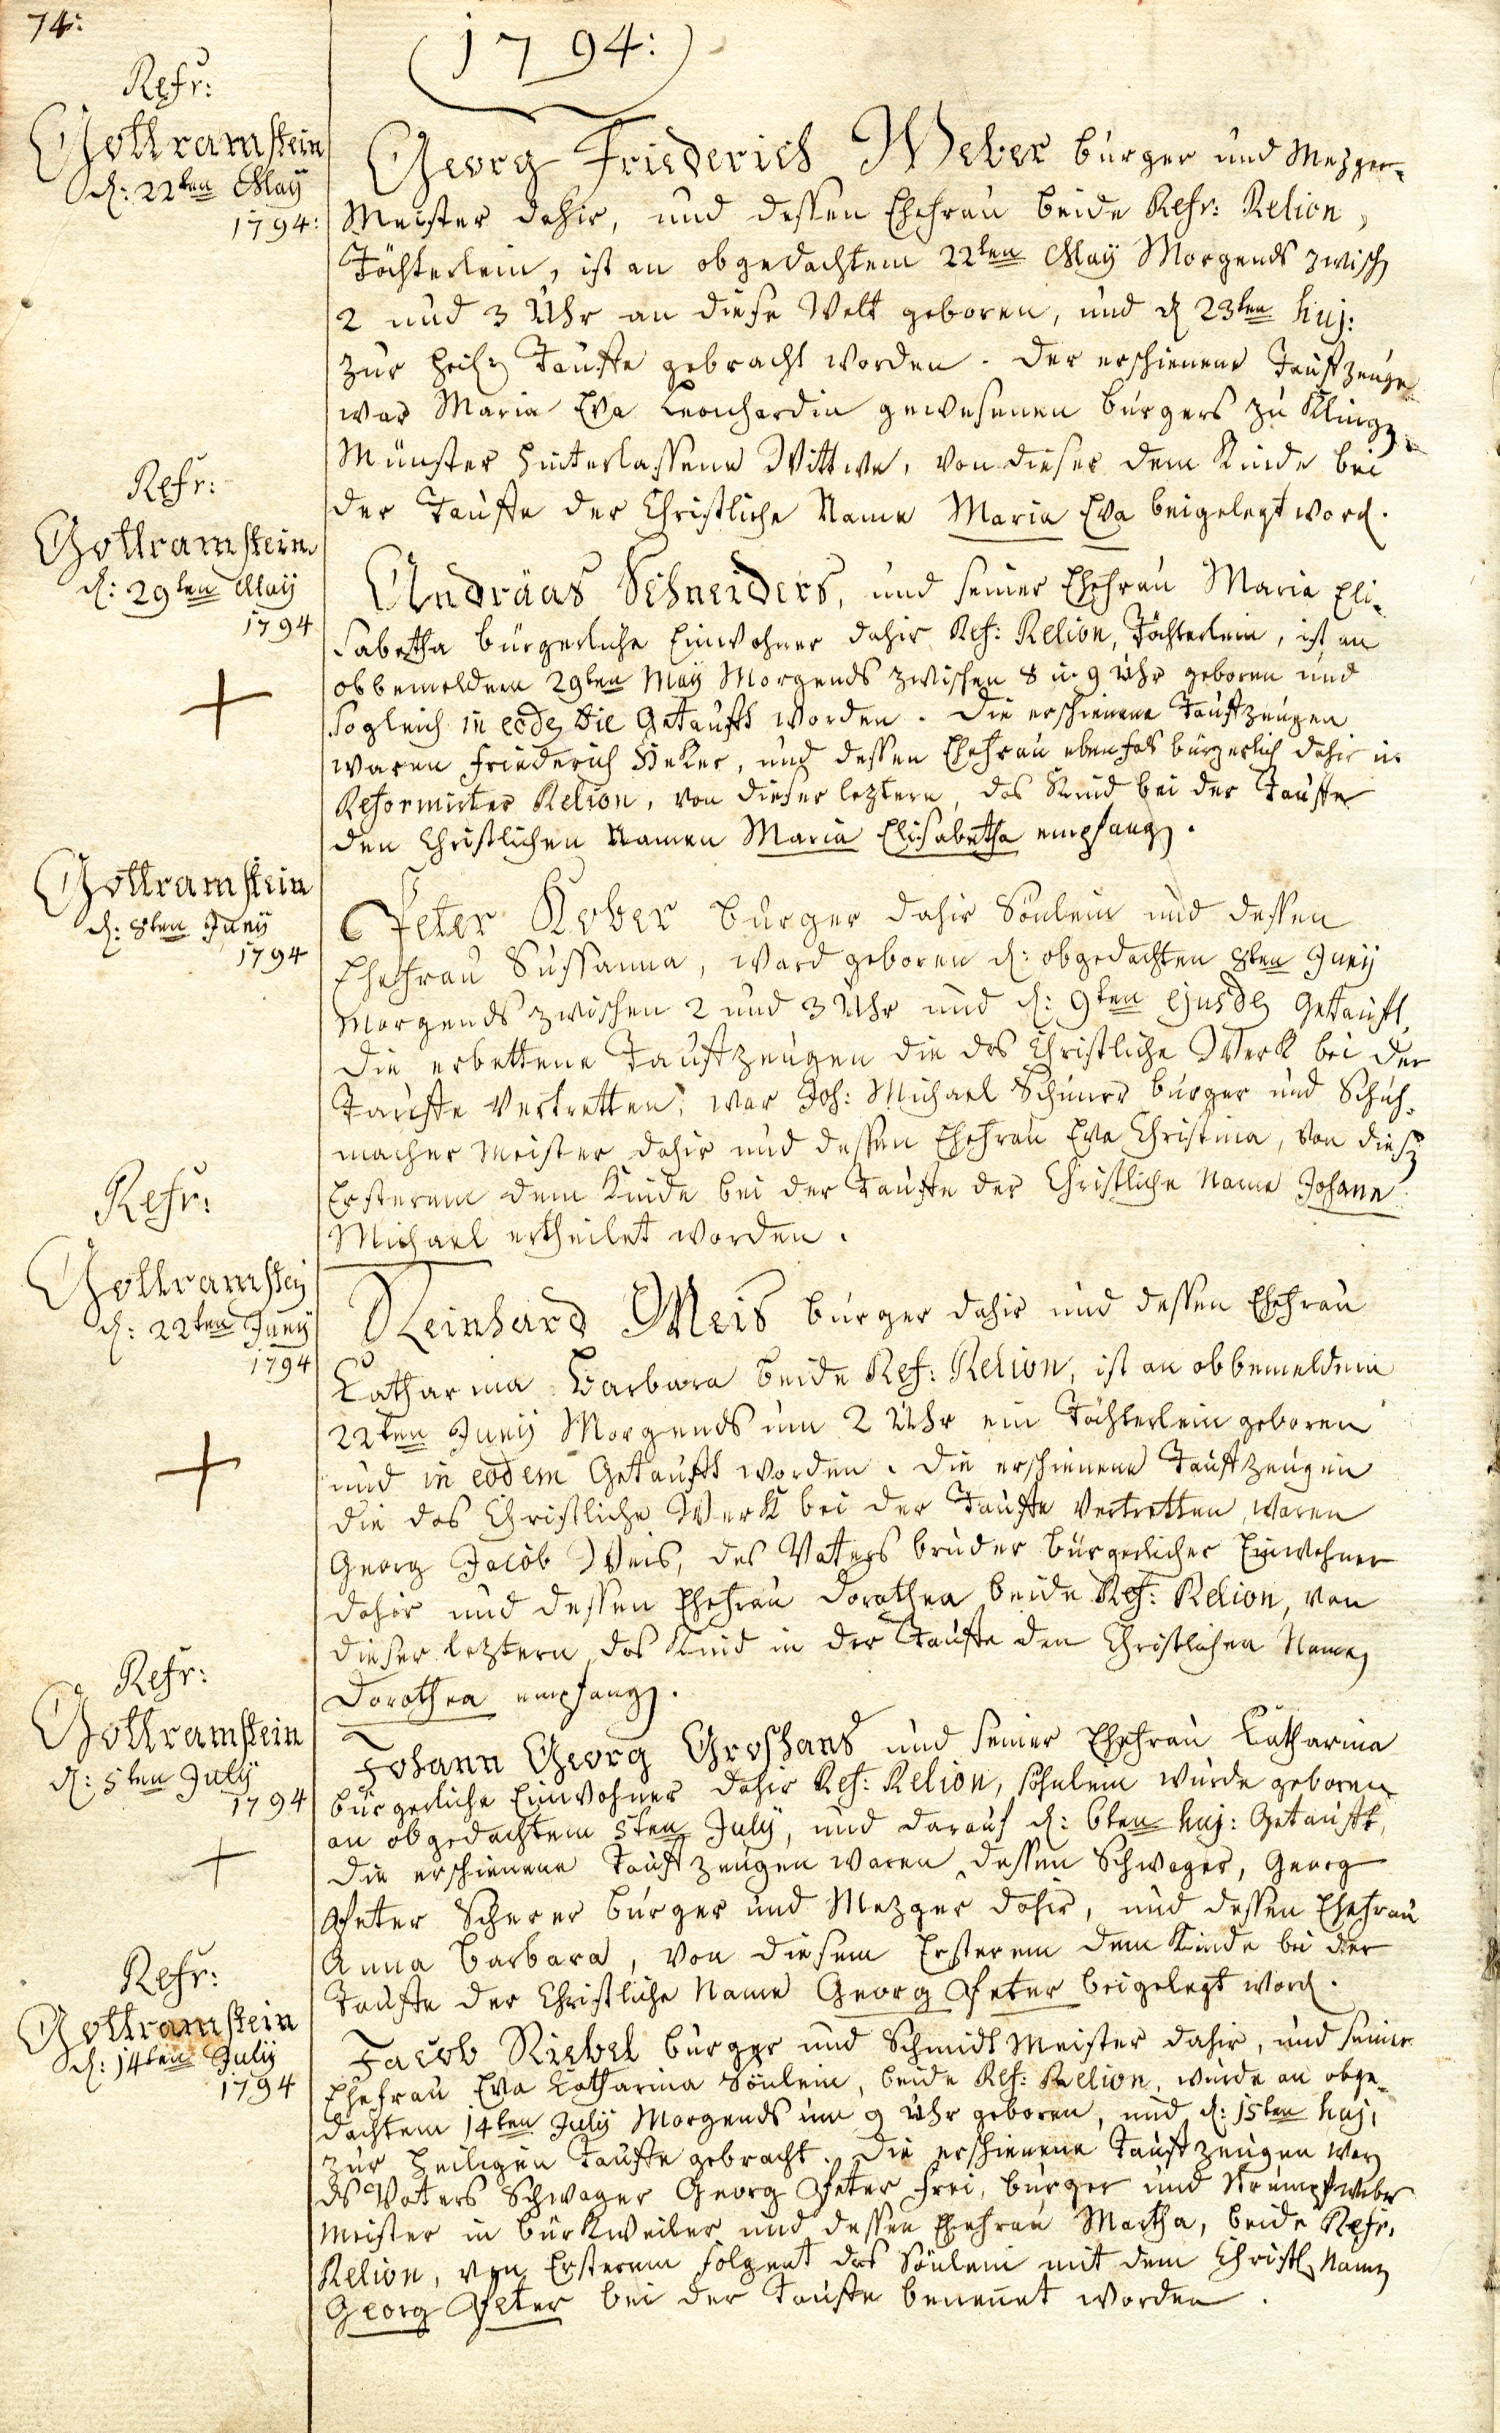 74:
1794:
Refr:
Gottramstein
d: 22ten May
1794:
Georg Friederich Weber burger und Mezger-
Meister dahir, und dessen Ehefrau beide Refr: Relion,
Töchterlein, ist an obgedachtem 22ten May Morgends zwisch
2 und 3 Uhr an diese Welt geboren, und d 23ten huj:
zur heil: Tauffe gebracht worden. Der erschienene Taufzeuge
war Maria Eva Leonhardin gewesenen burgers zu Kling
Münster hinterlassene Wittwe, von dieser dem Kinde bei
der Tauffe der Christliche Name Maria Eva beigelegt word.
Refr:
Gottramstein
d: 29ten May
1794
Andräas Schneiders, und seiner Ehefrau Maria Eli-
sabetha bürgerliche Einwohner dahir Ref: Relion, Töchterlein, ist an
obbemeldem 29ten May Morgends zwischen 8 u. 9 Uhr geboren und
sogleich in eod die Getaufft worden. Die erschienene Taufzeugen
waren Friederich Heker, und dessen Ehefrau ebenfals bürgerlich dahir u.
Reformirter Relion, von dieser leztern, das Kind bei der Tauffe
den Christlichen Namen Maria Elisabetha empfang.
Gottramstein
d: 8ten Juny
1794
Peter Kober burger dahir Sönlein und dessen
Ehefrau Sussanna, ward geboren d: obgedachten 8ten Juny
Morgends zwischen 2 und 3 Uhr und d: 9ten ejusd Getaufft,
die erbettene Taufzeugen die das Christliche Werk bei der
Tauffe vertretten, war Joh: Michael burger und Schuh-
macher Meister dahir und dessen Ehefrau Eva Christina, von dies
Ersterem dem Kinde bei der Tauffe der Christliche Name Johann
Michael ertheilet worden.
Refr:
Gottramstein
d: 22ten Juny
1794
Reinhard Weis burger dahir und dessen Ehefrau
Catharina Barbara beide Ref: Relion, ist an obbemeldem
22ten Juny Morgends um 2 Uhr ein Töchterlein geboren
und in eodem Getaufft worden. Die erschienene Taufzeugen
die das Christliche Werk bei der Tauffe vertretten, waren
Georg Jacob Weis, des Vaters bruder bürgerlicher Einwohner
dahir und dessen Ehefrau Dorothea beide Ref: Relion, von
dieser leztern das Kind in der Tauffe den Christlichen Name
Dorothea empfang.
Refr:
Gottramstein
d: 5ten July
1794
Johann Georg Groshans und seiner Ehefrau Catharina
bürgerliche Einwohner dahir Ref: Relion, söhnlein wurde geboren
an obgedachtem 5ten July, und darauf d: 6ten huj: Getaufft,
die erschienene Taufzeugen waren dessen Schwager, Georg
Peter Scherer burger und Mezger dahir, und dessen Ehefrau
Anna Barbara, von diesem Ersterem dem Kinde bei der
Tauffe der Christliche Name Georg Peter beigelegt word.
Refr:
Gottramstein
d: 14ten July
1794
Jacob Riebel burger und Schmidt Meister dahir, und seiner
Ehefrau Eva Catharina Sönlein, beide Ref: Relion, wurde an obge-
dachtem 14ten July Morgends um 9 Uhr geboren, und d: 15ten huj:
zur heiligen Tauffe gebracht. Die erschienene Taufzeugen war
ds Vaters Schwager Georg Peter Frei, burger und Strumpfweber
Meister in Bürkweiler und dessen Ehefrau Martha, beide Refr.
Relion, von Ersterem folgent das Sönlein mit dem Christl Name
Georg Peter bei der Tauffe benennet worden.